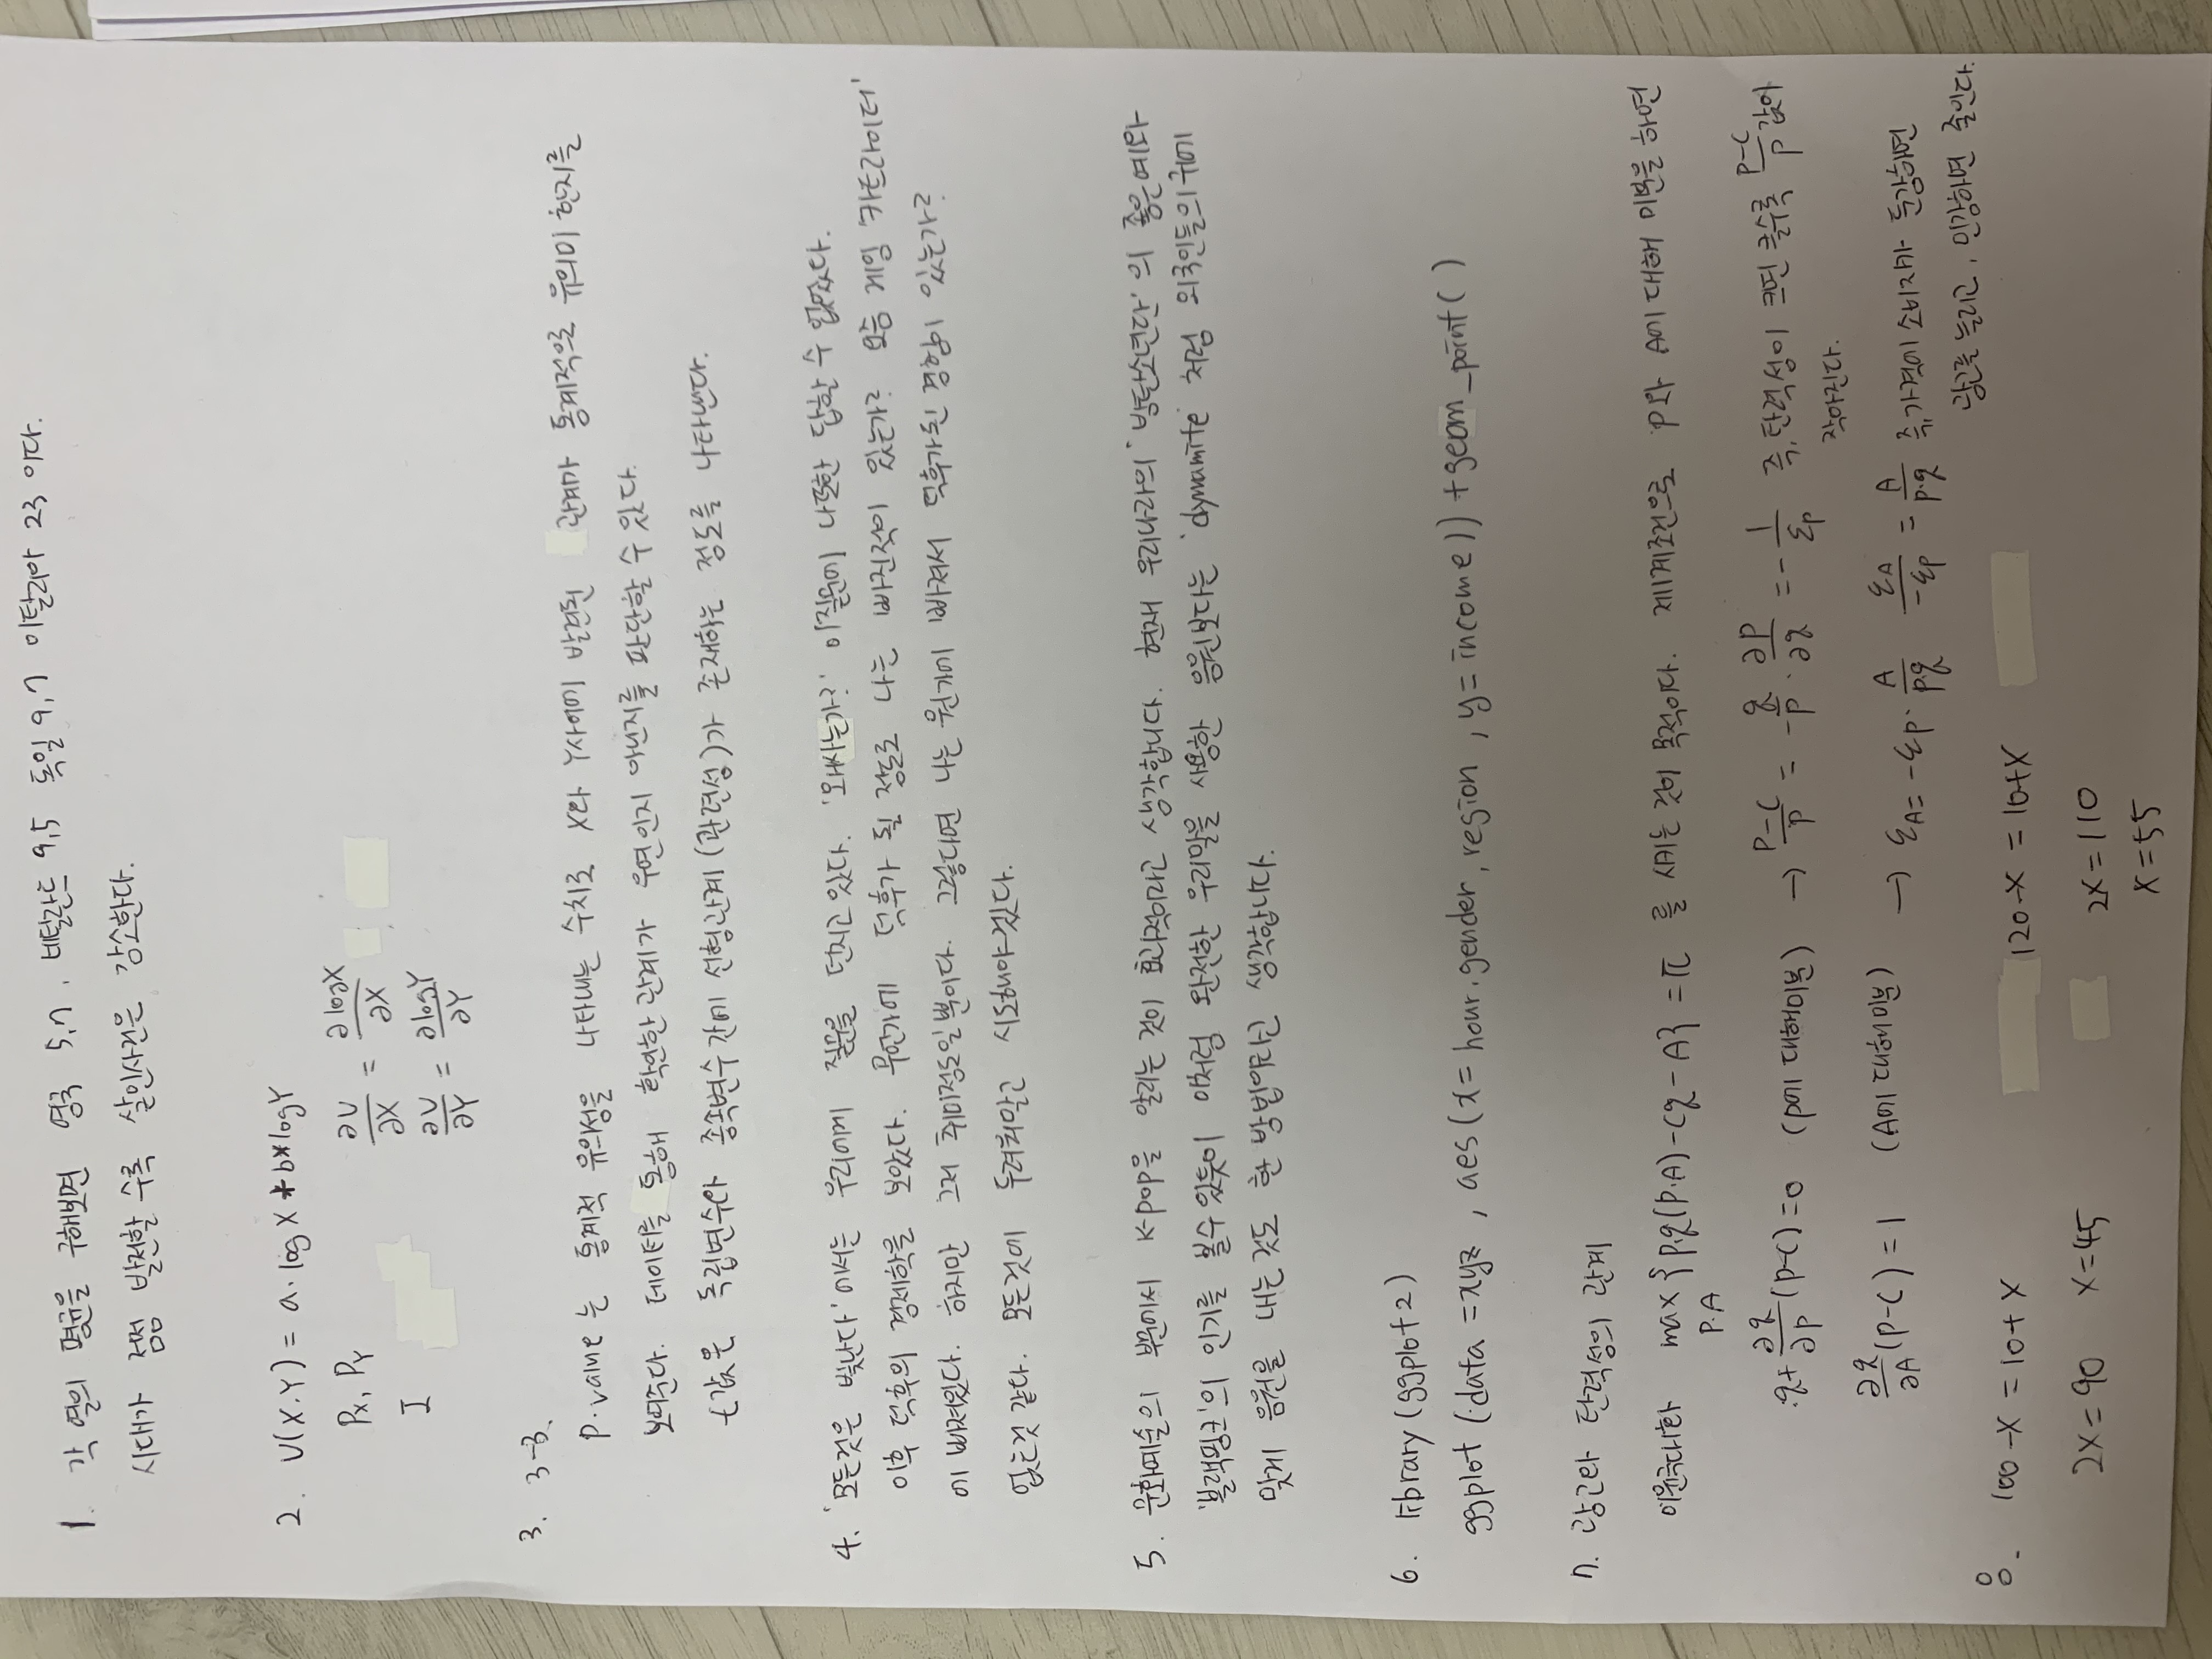 1. 각 열의 평균을 구해보면 영국 5,7, 네털란드 9,5 독일 9,7 이탈리아 23 이다.
시대가 점점 발전할 수록 살인사건은 감소한다.
2. U(X.Y) = a·logX * b*logY
Px, PY
∂U/∂X = ∂logX/∂X
I
∂U/∂Y = ∂logY/∂Y
3. 3-3.
P.value는 통계적 유의성을 나타내는 수치로 X와 Y사이에 발견된 관계가 통계적으로 유의미 한지를
보여준다. 데이터를 통해 확인한 관계가 우연인지 아닌지를 판단할 수 있다.
t값은 독립변수와 종속변수 간에 선형관계(관련성)가 존재하는 정도를 나타낸다.
4. '모든것은 빛난다'에서는 우리에게 질문을 던지고 있다. '왜사는가?' 이질문에 나또한 답할 수 없었다.
이후 덕후의 경제학을 보았다. 무언가에 덕후가 될 정도로 나는 빠진적이 있는가? 요즘 게임 '카트라이더'
에 빠져있다. 하지만 그저 취미정도일 뿐이다. 그렇다면 나는 뭔가에 빠져서 덕후가된 경험이 있는가?
없는것 같다. 모든것에 두려워말고 시도해야겠다.
5. 문화예술의 부문에서 K-pop을 알리는 것이 효과적이라고 생각합니다. 현재 우리나라의 '방탄소년단'의 좋은예와
'블랙핑크'의 인기를 볼수 있듯이 이처럼 완전한 우리말을 사용한 음원보다는 'dynamite' 처럼 외국인들의 귀에
맞게 음원을 내는것도 한 방법이라고 생각합니다.
6. library(ggplot2)
ggplot (data = xyz, aes(x= hour.gender, region, y= income)) + geom_point( )
7. 광고와 탄력성의 관계
이윤극대화 max {p.q(p.A)-cq-A} = π 를 시키는 것이 목적이다. 제1계조건으로 P와 A에 대해 미분을 하면
P.A
q+∂q/∂p(p-c)=0 (P에 대해미분) → P-C/P = -q/p·∂p/∂q = -1/εp 즉, 탄력성이 크면 클수록 P-C/P 값이
작아진다.
∂q/∂A(p-c)=1 (A에 대해미분) → εA= -εp·A/p.q εA/-εp = A/p.q 즉,가격에 소비자가 둔감하면
광고를 늘리고, 민감하면 줄인다.
8. 100-X = 10+X 120-X = 10+X
2X=90 X=45 2X=110
X=55